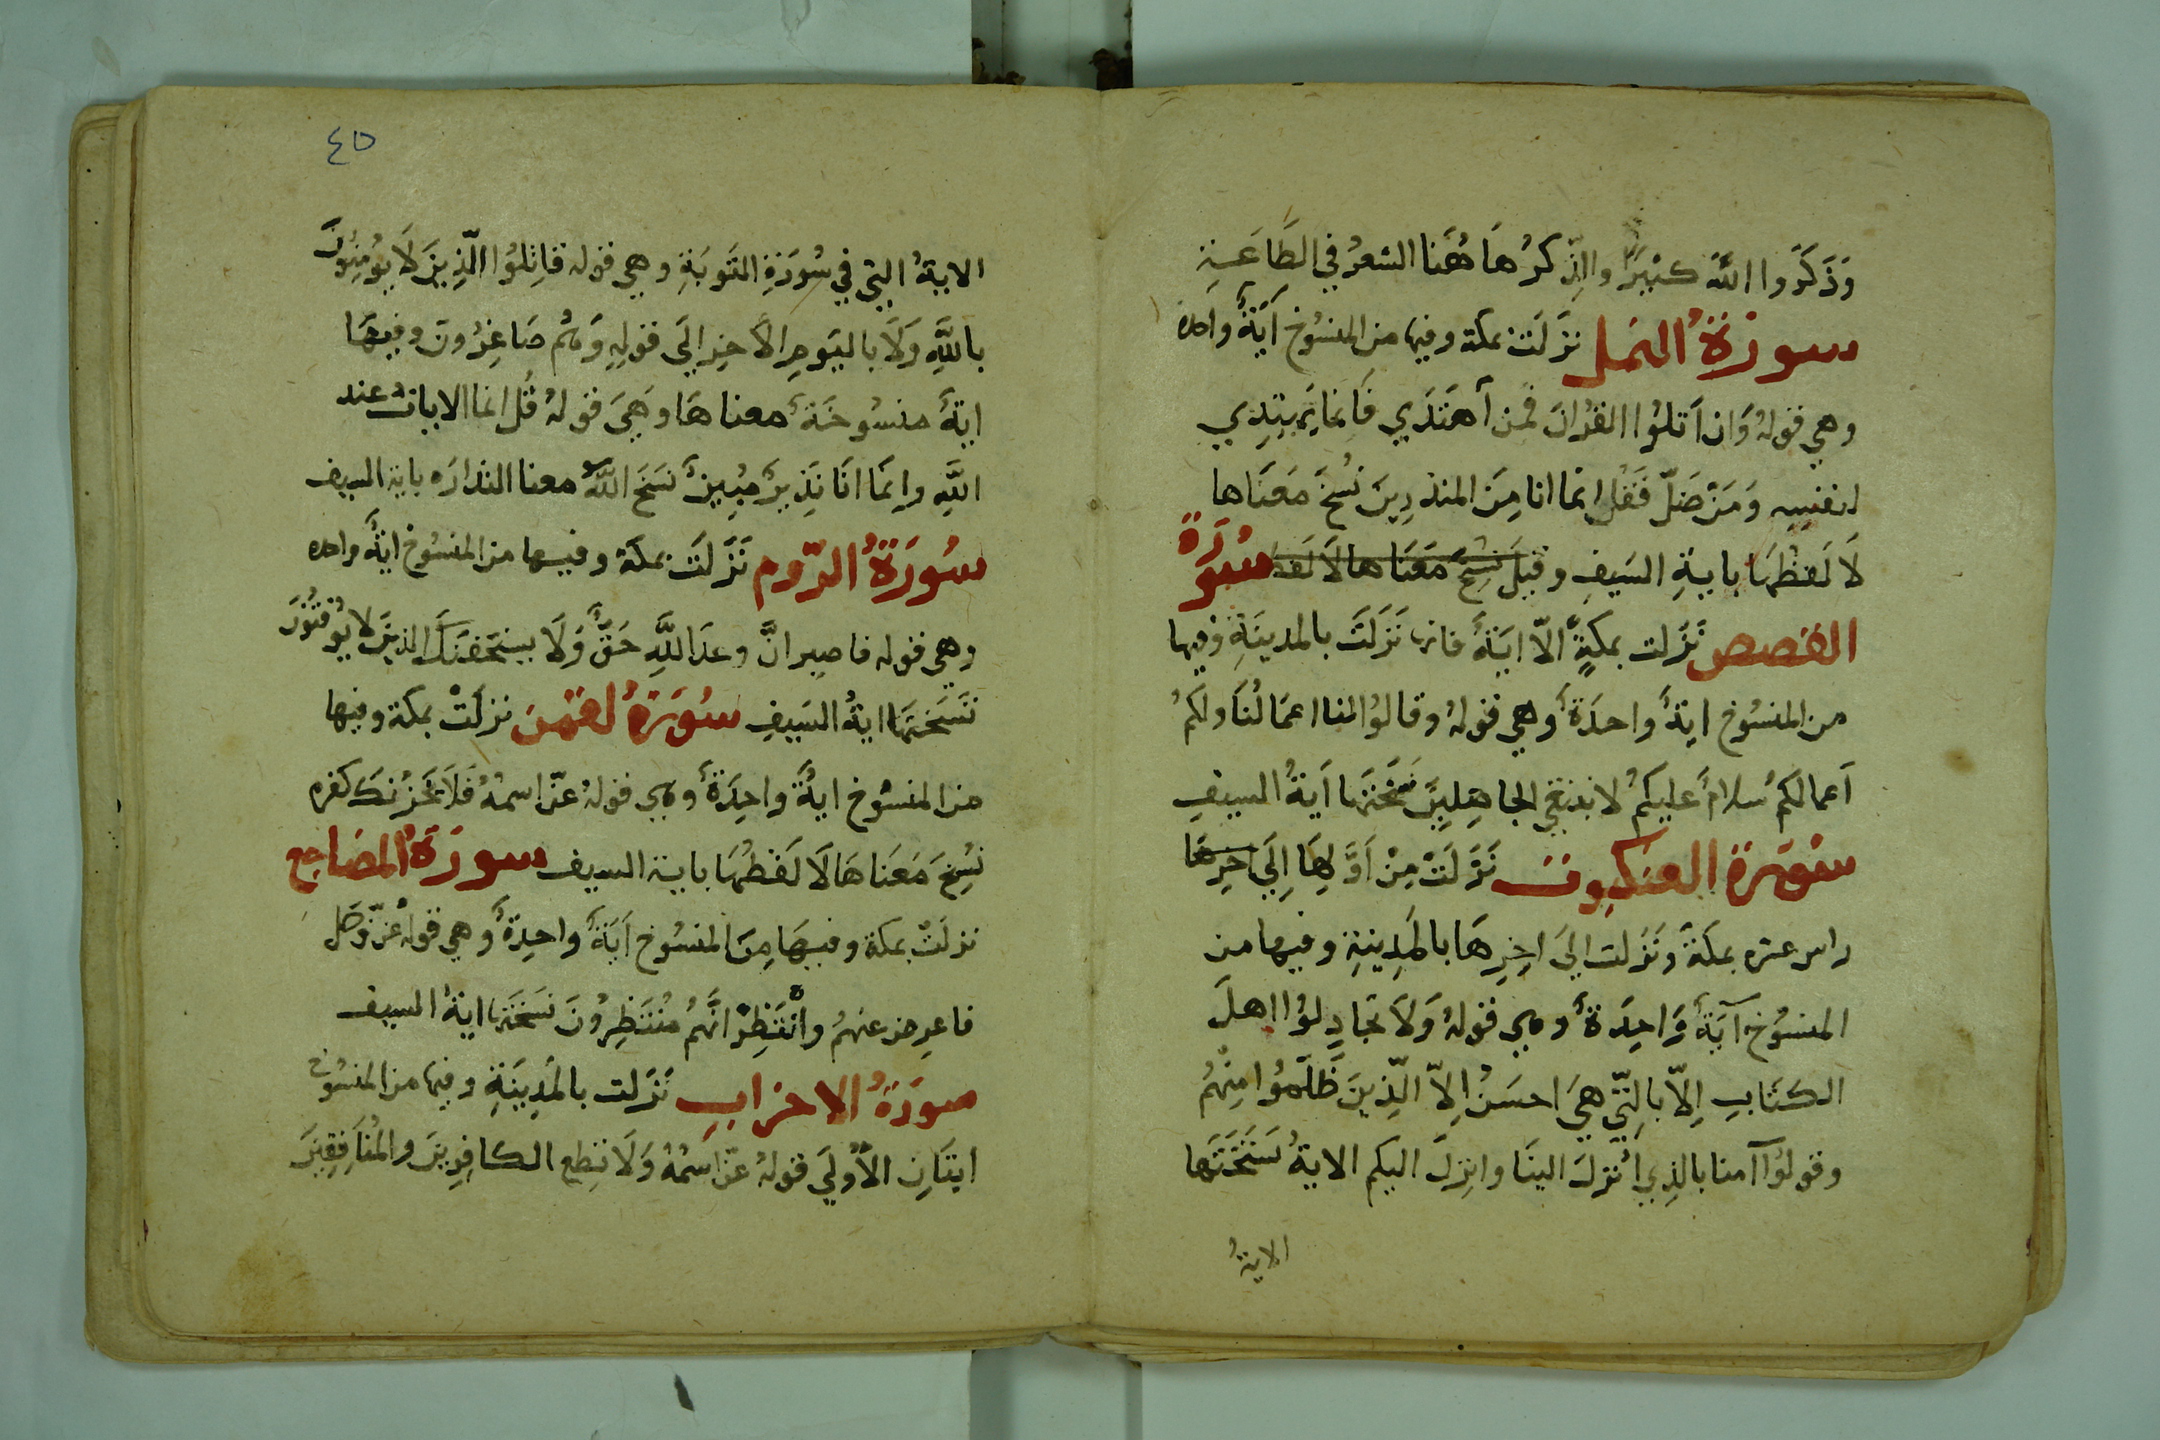 وَذَكَرُوا اللهَ كثيرًا والذِّكرُ هَا هُنَا الشعرُ في الطَّاعَةِ
سورَةُ النمل نَزَلَت بمكة وفيها من المنسُوخ آيَةٌ واحدة
وهي قولهُ وَان اَتلُوا القرُانَ فمن اَهتَدَي فَاِنمَا يَهتَدِي
لنفسِهِ وَمَن ضَلّ فَقُل اِنمّا انا مِنَ المنذِرِينَ نُسِخَ مَعنَاها
لَا لَفظُهَا بايةِ السَيفِ وقيلَ نسِخَ مَعَنَاها لَا لَفظ سُورَة
القصص نَزَلت بمكةٍ الاّ ايَةً فانها نَزَلَتَ بالمدينَةِ وفيها
من المنسُوخ ايةٌ واحدَةٌ وهي قولهُ وقالوُا لنا اعمَالُنَا ولكمُ
اَعمالكمُ سلامٌ عليكمُ لا نبتغي الجاهِلِينَ نَسَخَتهَا اَيةُ السيفِ
سُورَة العنكبوت نَزَلَتْ مِنْ اَوَّلِهَا اِلَي اخِرِهَا
راس عشره بمكةَ ونَزَلت اليَ اخِرِهَا بالمَدِينةِ وفيها من
المنسوُخ آيَةٌ وَاحِدَةٌ وهي قولهُ وَلَا تجَادِلوُا اهلَ
الكتَابِ اِلاّ بالتِّي هيَ احسَنُ اِلاّ الّذِينَ ظَلَمُوا مِنْهُم
وقولوُا آمنا بالذِي اُنزلَ الينَا وانزِلَ اليكم الايةُ نَسَخَتَها
الايةُ
٤٥
الايةُ التِي في سُورَةِ التَوبَةِ وهي قوله قاتِلوُا الّذِينَ لَا يؤمِنُونَ
باللَّهِ وَلَا باليَومِ الاَخِرِ اِلَي قولِهِ وَهُم صَاغِرُونَ وفيهَا
ايَةٌ منسُوخَةٌ معناهَا وهَيَ قولهُ قُل انما الاياتُ عند
اللَّهِ واِنمَا انَا نَذِيرٌ مُبِينٌ نسَخَ اللَّهُ معنا النذارَه باية السيف
سُورَةُ الرّوم نَزَلَت بمكة وفيها من المنسُوخ ايةٌ واحده
وهي قوله فاصبر انَّ وعدَ اللَّهِ حَقٌّ وَلَا يستخفنَكَ الذينَ لا يوُقنُونَ
نَسَخَتهَا ايةُ السَيفِ سُورَةُ لقمن نزلَتْ بمكة وفيها
من المنسُوخ ايةٌ واحِدَةٌ وهي قولهُ عزّ اسمهُ فَلَا يَحزُنكَ كفره
نسِخَ مَعَناهَا لَا لَفظُهَا باية السيف سورَةُ المضاجع
نزلَتْ بمكة وفيهَا مِنَ المنسُوخ اَيَةٌ واحِدةٌ وهي قولهُ عزّ وَجَل
فاعرِض عنهمُ وانْتَظِرْ انَّهُم مُنْتَظِرُونَ نَسَخَتهَا ايةُ السيف
سورَةُ الاحزابِ نَزَلت بالمَدِينَةِ وفيها من المنسُوخ
ايتَانِ الاُولَيَ قولهُ عزّ اسمُهُ وَلَا تطِع الكافِرِينَ والمُنَافِقِينَ